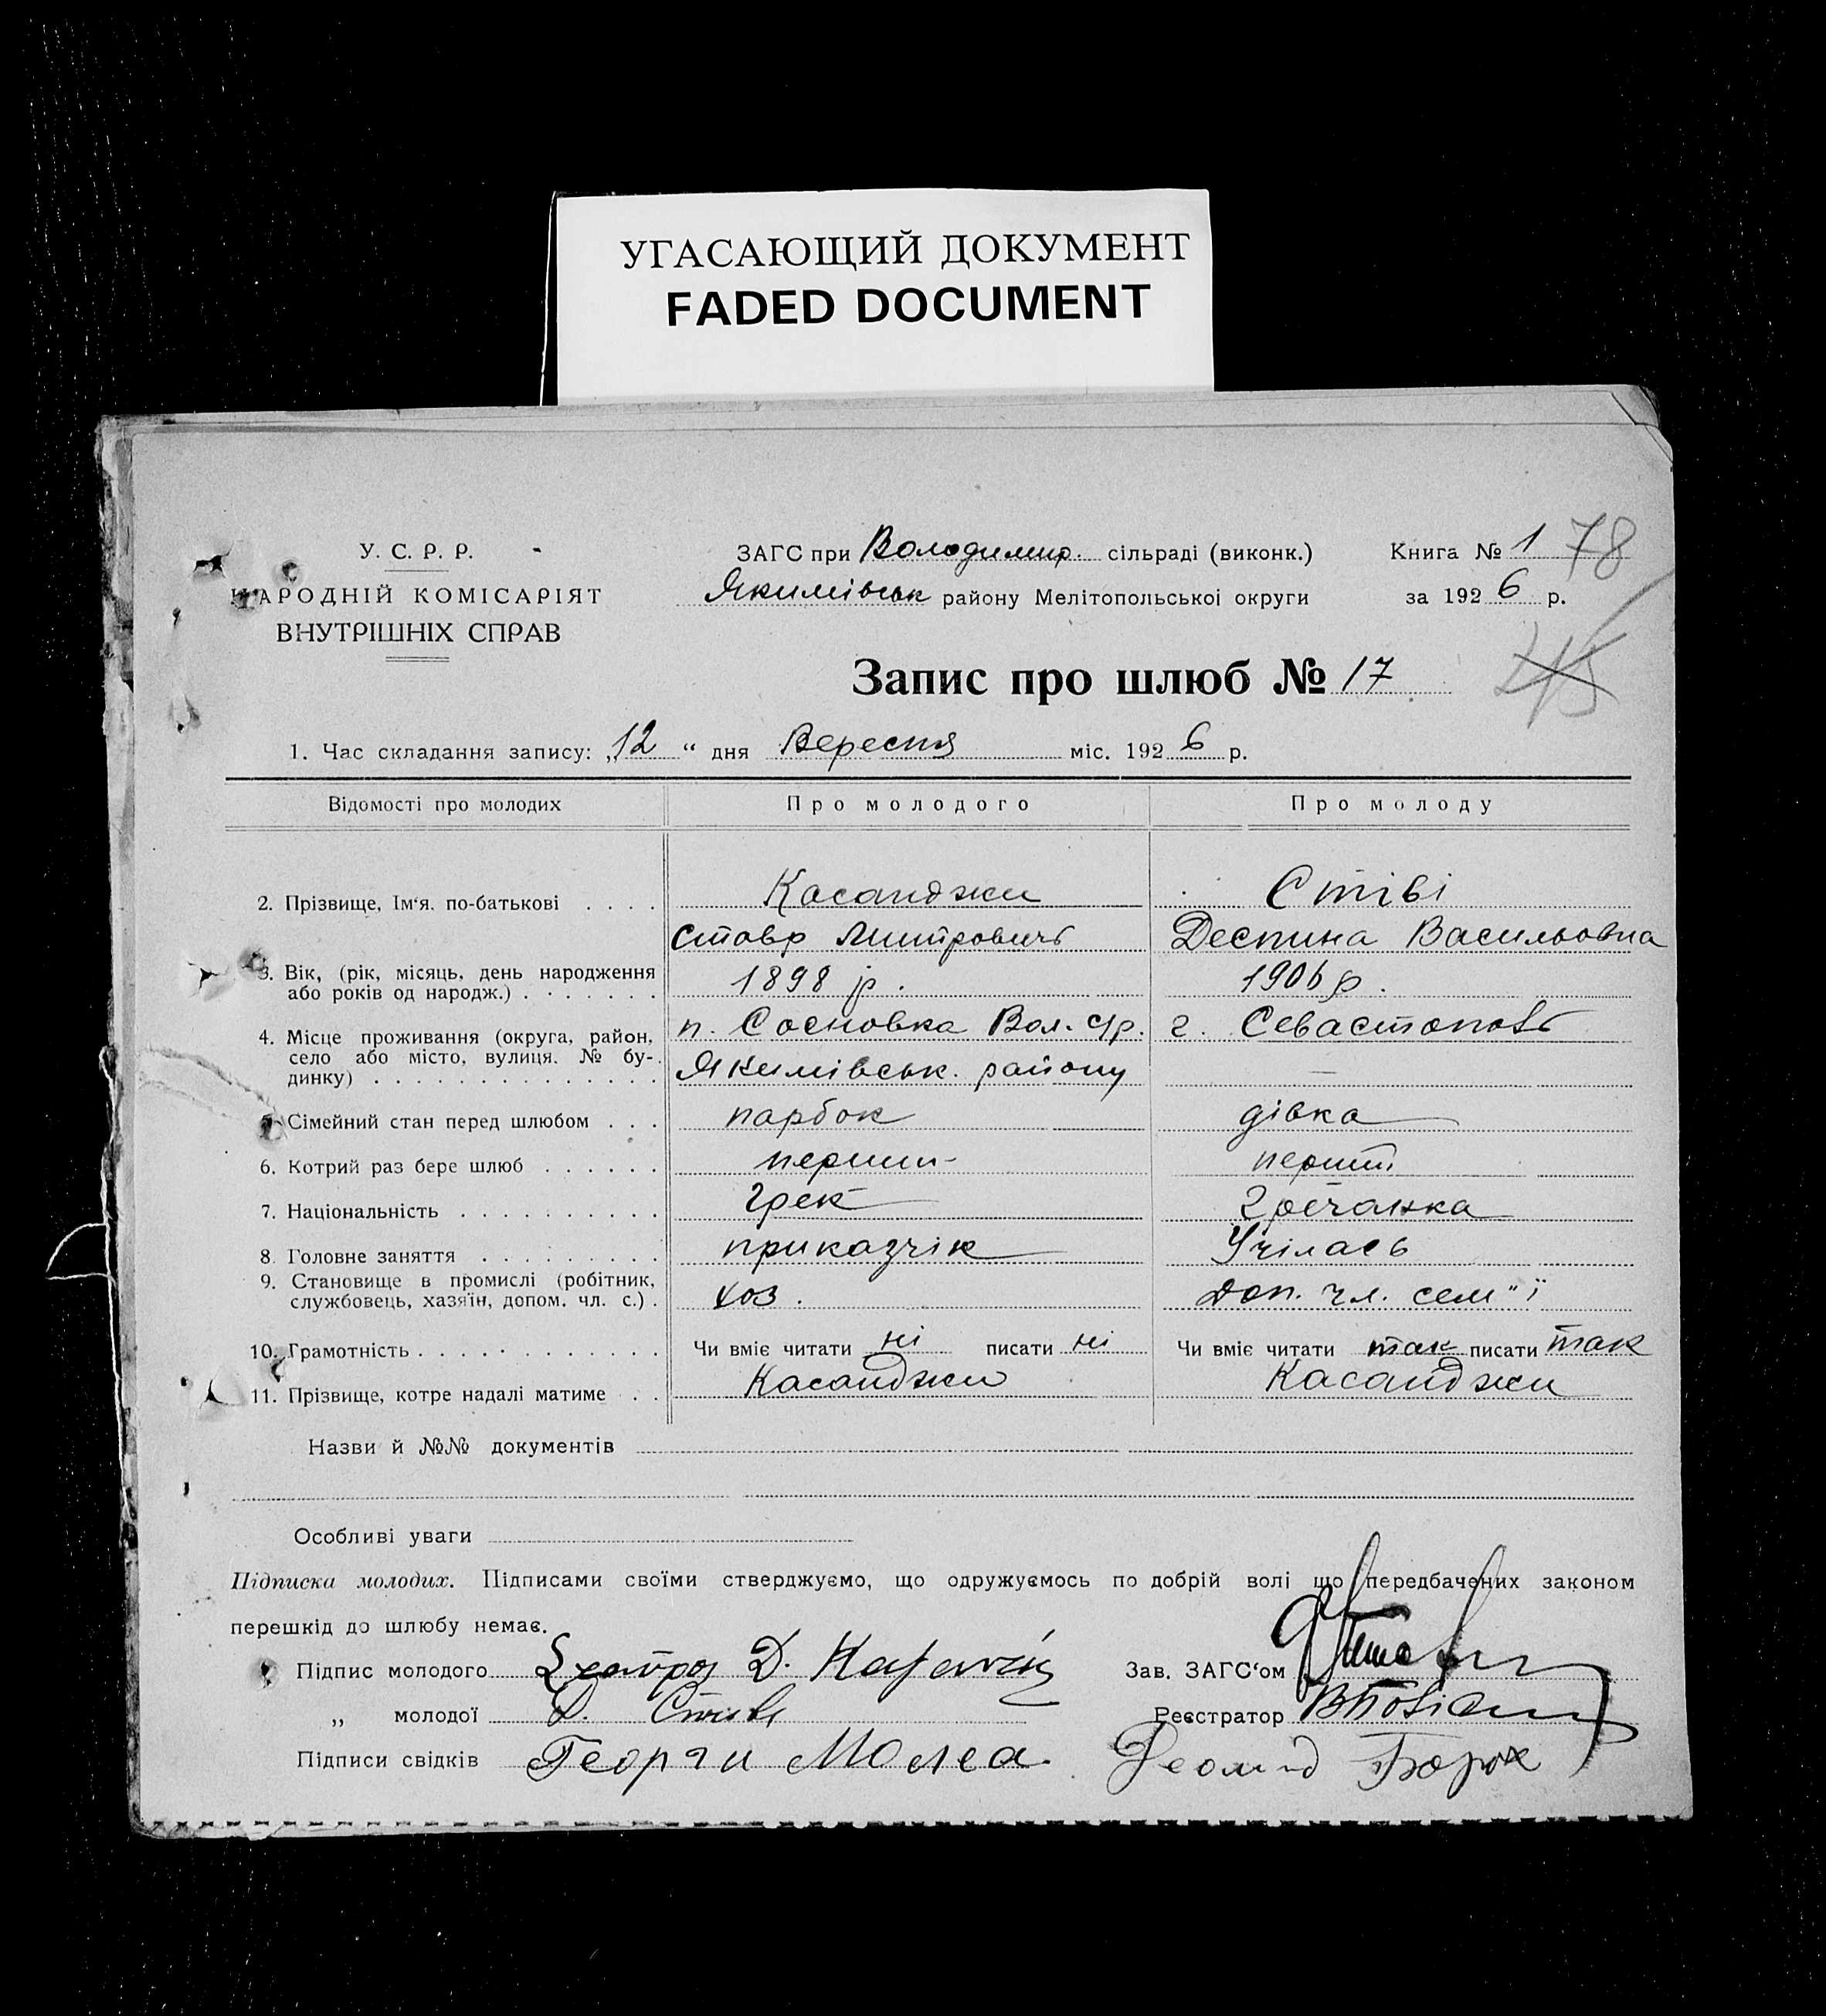 УГАСАЮЩИЙ ДОКУМЕНТ
FADED DOCUMENT
У. С. Р. Р.
НАРОДНІЙ КОМІСАРІЯТ
ВНУТРІШНІХ СПРАВ
ЗАГС при Володимир. сільраді (виконк.)
Якимівськ району Мелітопольськоі округи
Книга № 1 78
за 1926 р.
Запис про шлюб № 17
1. Час складання запису: „12 “ дня Вересня міс. 1926 р.
Відомості про молодих Про молодого Про молоду
2. Прізвище, Ім‘я. по-батькові . . . . Касанджи Стіві
Ставр Митровичъ Деспина Васильовна
3. Вік, (рік, місяць, день народження або років од народж.) . . . . . . . 1898 р. 1906 р.
4. Місце проживання (округа, район, село або місто, вулиця. № бу-динку) . . . . . . . . . . . . . . п. Сосновка Вол. с/р. г. Севастополь
Якимівськ. району —
5. Сімейний стан перед шлюбом . . . парбок дівка
6. Котрий раз бере шлюб . . . . . . перший
7. Національність . . . . . . . . . . грек гречанка
8. Головне заняття . . . . . . . . . приказчік Учілась
9. Становище в промислі (робітник, службовець, хазяїн, допом. чл. с.) . хоз. доп. чл. сем"ї
10. Грамотність . . . . . . . . . . . . Чи вміє читати ні писати ні Чи вміє читати так писати так
11. Прізвище, котре надалі матиме . . Касанджи Касанджи
Назви й №№ документів
Особливі уваги
Підписка молодих. Підписами своїми стверджуємо, що одружуємось по добрій волі що передбачених законом
перешкід до шлюбу немає.
Підпис молодого Д. Зав. ЗАГС‘ом
„ молодої Д. Стиві Реєстратор
Підписи свідків Георги Молса